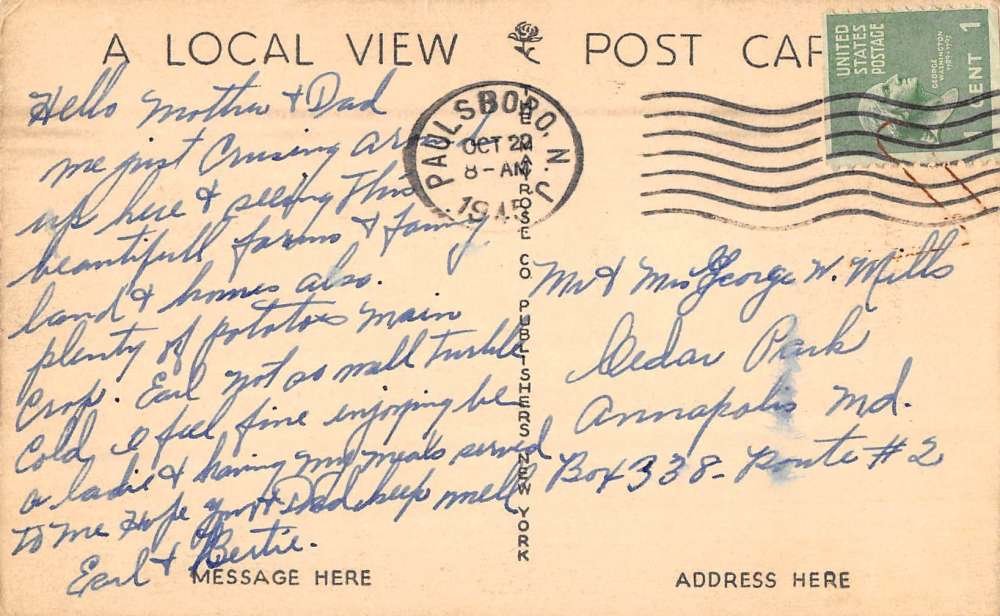 A LOCAL VIEW POST CAR
Hello Mother & Dad
me just Cruising around
up here & seeing this
beautifull farms & Farming
land & homes also.
plenty of potatoes main
Crop. Earl not so well turible
Cold, I feel fine enjoying be
a ladie & having my meals served
to me Hope you & Dad keep well
Earl & Bertie.
MESSAGE HERE
THE MAYROSE CO. PUBLISHERS, NEW YORK
PAULSBORO, N.J.
OCT 22
8-AM
1945
UNITED
STATES
POSTAGE
GEORGE
WASHINGTON
1789-1797
1 CENT 1
Mr & Mrs George W. Mills
Cedar Park
Annapolis Md.
Box 338- Route # 2
ADDRESS HERE